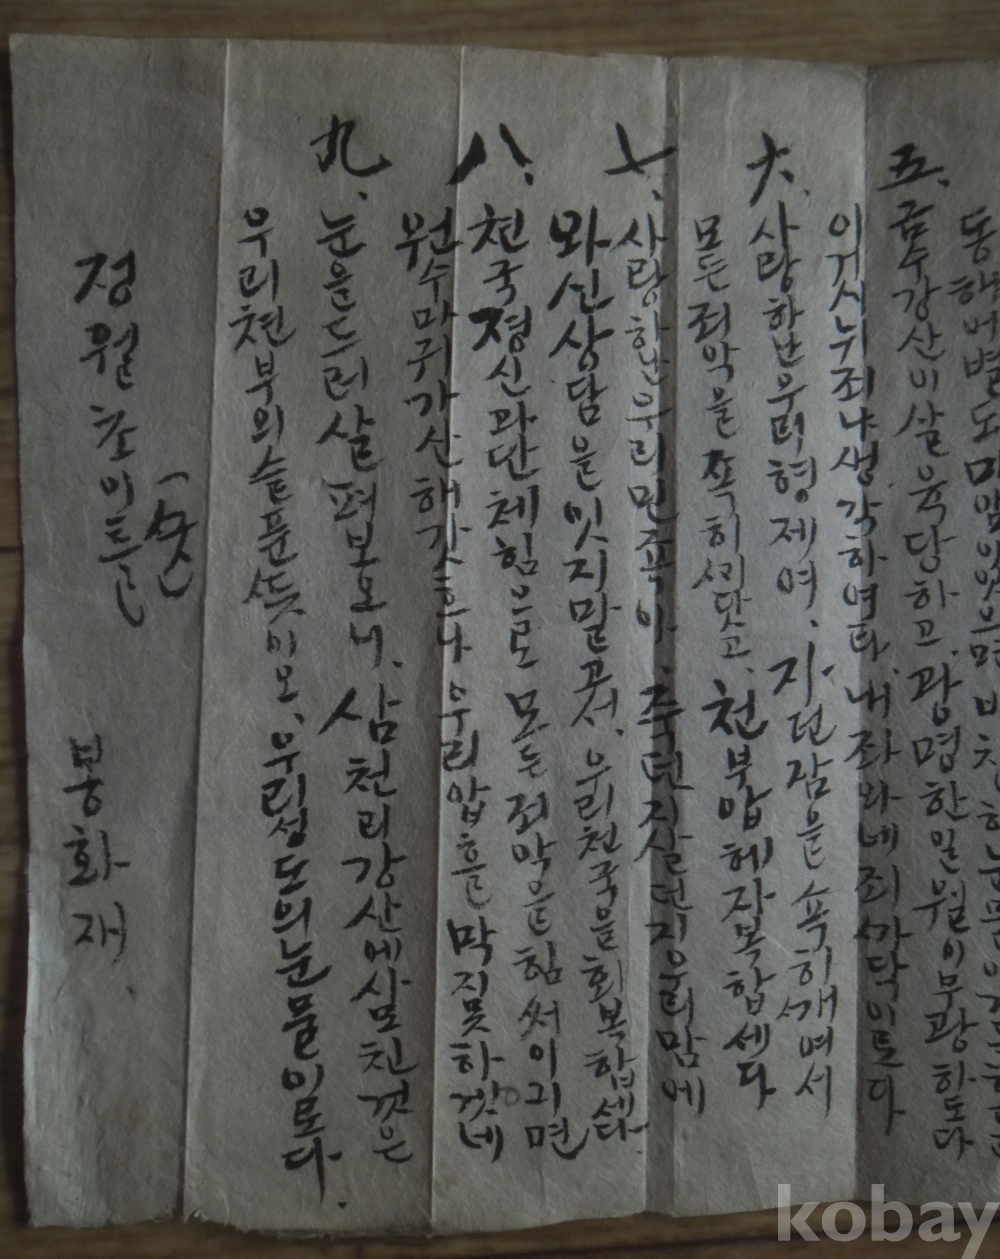 동해에별도
五、금수강산이살육당하고、광명한일월이무광하도다
이거시뉘죄냐생각하여라、내죄와네죄까닥이로다
六、사랑하난우리형제여、자던잠을쇽히깨여서
모든죄악을쇽히씨닷고、천부압헤자복합세다
七、사랑하난우리민죡아、죽던지살던지우리맘에
와신상담을잇지말고서、우리천국을회복합세다
八、천국정신과단체힘으로모든죄악을힘써이긔면
원수마귀가산해갓흐나우리압흘막지못하겟네
九、눈을드러살펴보오니、삼천리강산에살모친것은
우리천부의슬픈뜻이오、우리성도의눈물이로다.
(끗)
정월초이틀 봉화재.
kobay